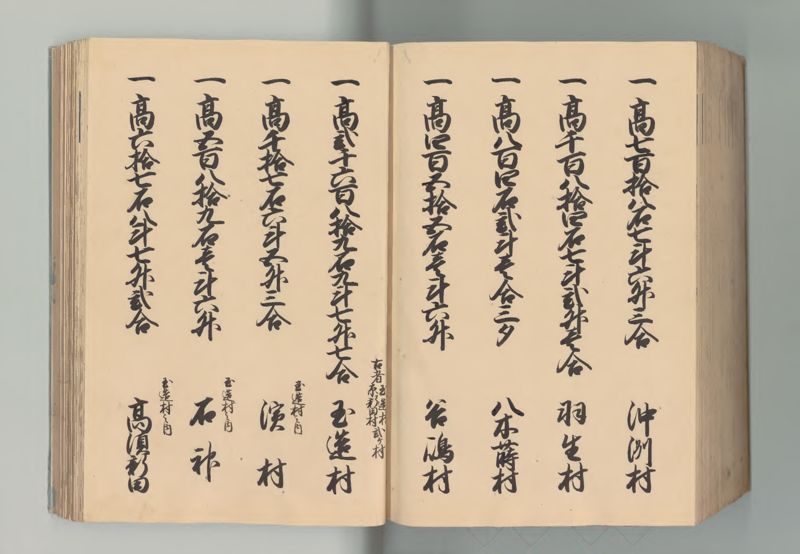 一 高七百拾八石七斗六升三合 沖洲村
一 高千百八拾四石七斗弐升壱合 羽生村
一 高八百四石弐斗壱合三夕 八木蒔村
一 高四百五拾五石壱斗六升 谷嶋村
古者玉造村
原新田村弐ケ村
一 高弐千六百八拾九石九斗七升七合 玉造村
玉造村之内
一 高千拾七石六斗五升三合 濱村
玉造村之内
一 高五百八拾九石壱斗六升 石神
玉造村之内
一 高六拾七石八斗七升弐合 高須新田